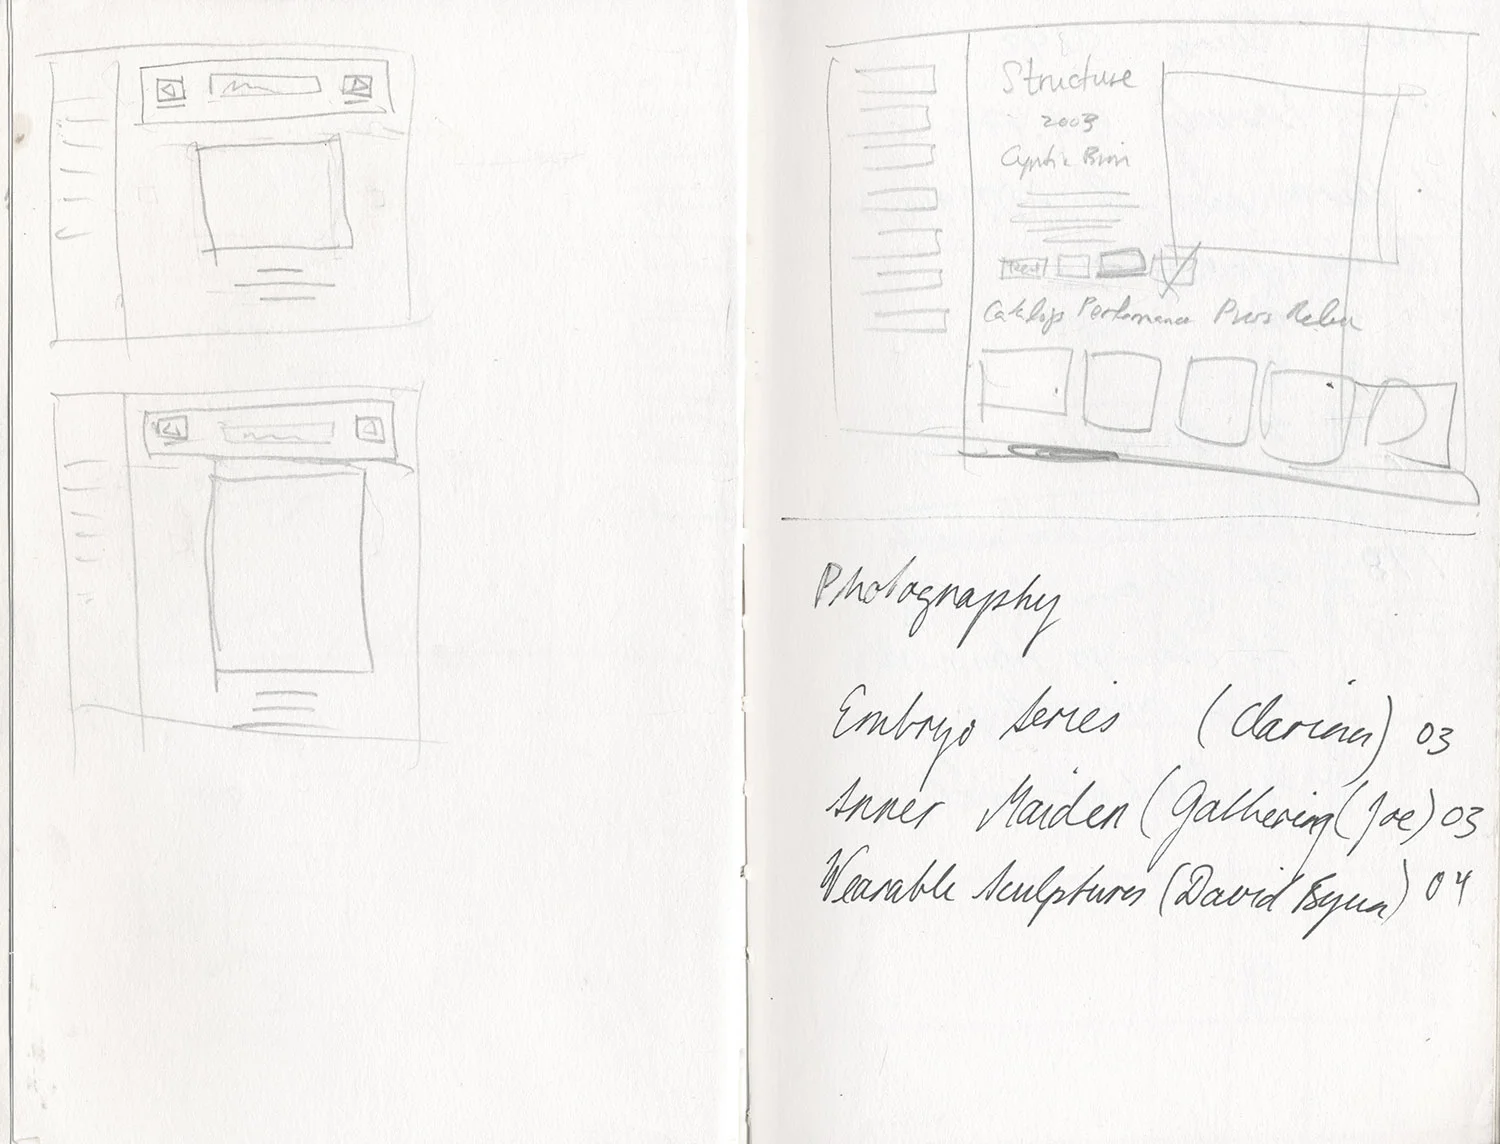 Structure
2003
Text
Catalogs Performance Press Release
Photography
Embryo Series ( ) 03
Inner Maiden (Gathering (Joe) 03
Wearable Sculptures (David Byun) 04